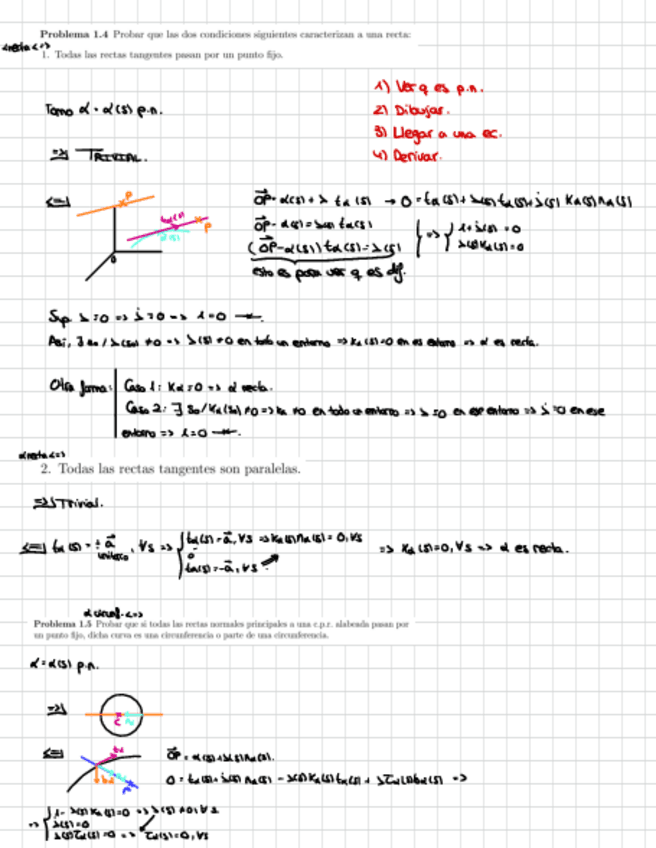 Problema 1.4 Probar que las dos condiciones siguientes caracterizan a una recta:
α recta <=>
1. Todas las rectas tangentes pasan por un punto fijo.
1) Ver q es p.n.
Tomo α = α(s) p.n.
2) Dibujar.
3) Llegar a una ec.
4) Derivar.
=>| TRIVIAL.
<=| P
OP = α(s) + λ tα(s) → 0 = tα(s) + λ(s) tα(s) + λ̇(s) Kα(s) nα(s)
OP - α(s) = λ(s) tα(s)
(OP - α(s)) tα(s) = λ(s)
=> { 1 + λ̇(s) = 0
λ(s) Kα(s) = 0
esto es para ver q es dif.
Sup. λ = 0 => λ̇ = 0 => 1 = 0
Así, ∃ s₀ / λ(s₀) ≠ 0 => λ(s) ≠ 0 en todo un entorno => Kα(s) = 0 en es entorno => α es recta.
Otra forma: Caso 1: Kα = 0 => α recta.
Caso 2: ∃ s₀ / Kα(s₀) ≠ 0 => Kα ≠ 0 en todo un entorno => λ = 0 en ese entorno => λ̇ = 0 en ese
entorno => 1 = 0
α recta <=>
2. Todas las rectas tangentes son paralelas.
=>| Trivial.
<=| tα(s) = ± a, ∀s => { tα(s) = a, ∀s => Kα(s) nα(s) = 0, ∀s
unitario
o
tα(s) = -a, ∀s
=> Kα(s) = 0, ∀s => α es recta.
α circunf. <=>
Problema 1.5 Probar que si todas las rectas normales principales a una c.p.r. alabeada pasan por
un punto fijo, dicha curva es una circunferencia o parte de una circunferencia.
α = α(s) p.n.
=>|
<=|
OP = α(s) + λ(s) nα(s).
0 = tα(s) + λ̇(s) nα(s) - λ(s) Kα(s) tα(s) + λ τα(s) bα(s) =>
=> { 1 - λ(s) Kα(s) = 0 => λ(s) ≠ 0, ∀s
λ̇(s) = 0
λ(s) τα(s) = 0 => τα(s) = 0, ∀s